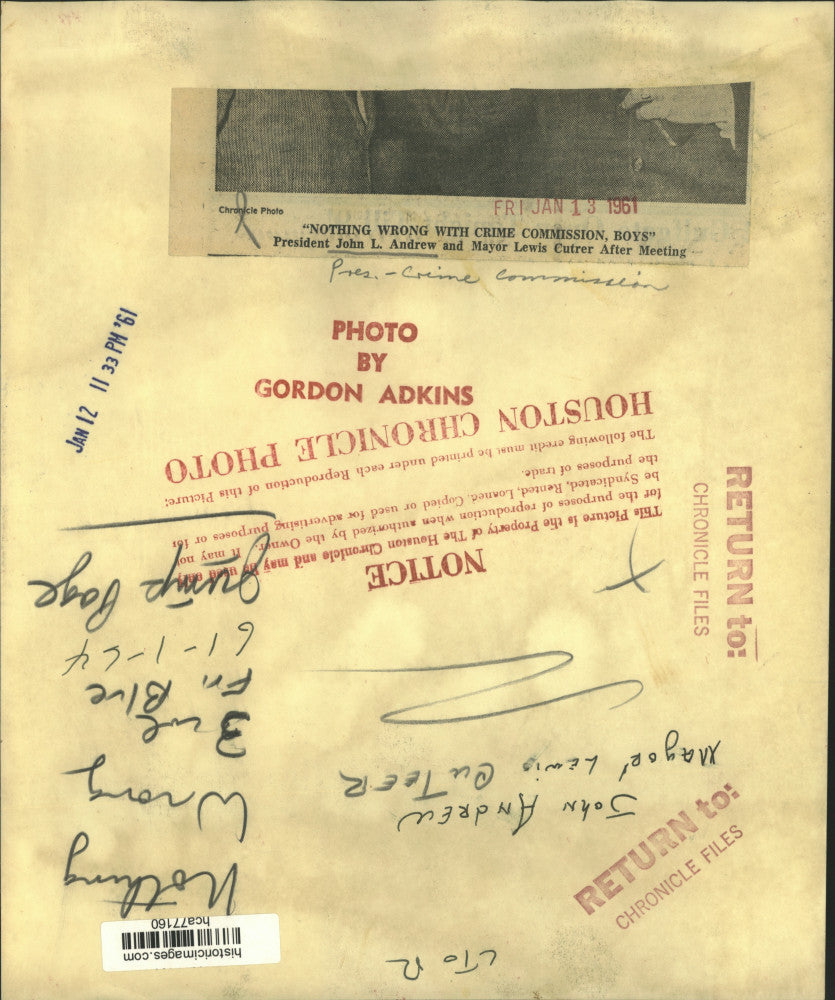 Chronicle Photo
FRI JAN 13 1961
"NOTHING WRONG WITH CRIME COMMISSION, BOYS"
President John L. Andrew and Mayor Lewis Cutrer After Meeting
Pres. - Crime Commission
JAN 12 11 33 PM '61
PHOTO
BY
GORDON ADKINS
NOTICE
This Picture is the Property of The Houston Chronicle and may be used only
for the purposes of reproduction when authorized by the Owner. It may not
be Syndicated, Rented, Loaned, Copied or used for advertising purposes or
the purposes of trade.
The following credit must be printed under each Reproduction of this Picture:
HOUSTON CHRONICLE PHOTO
RETURN to:
CHRONICLE FILES
RETURN to:
CHRONICLE FILES
L To R
John Andrew
Mayor Lewis CuTeeR
Nothing
Wrong
3 col
Fri Blue
61-1-54
Jump Page
historicimages.com
hca77160